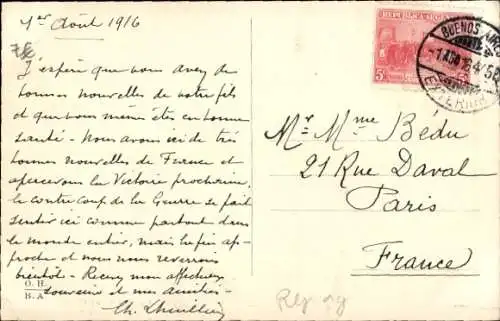 1er Août 1916
J'espère que vous avez de
bonnes nouvelles de votre fils
et que vous mêmes êtes en bonne
santé. Nous avons ici de très
bonnes nouvelles de France et
apercevons la Victoire prochaine,
le contre coup de la Guerre se fait
sentir ici comme partout dans
le monde entier, mais la fin ap-
proche et nous nous reverrons
bientôt. Recevez mon affectueux
souvenir et mes amitiés.
Ch.
O. H.
B. A
REPUBLICA ARGENTINA
5
BUENOS AIRES
Mr & Mme Bédu
21 Rue Daval
Paris
France